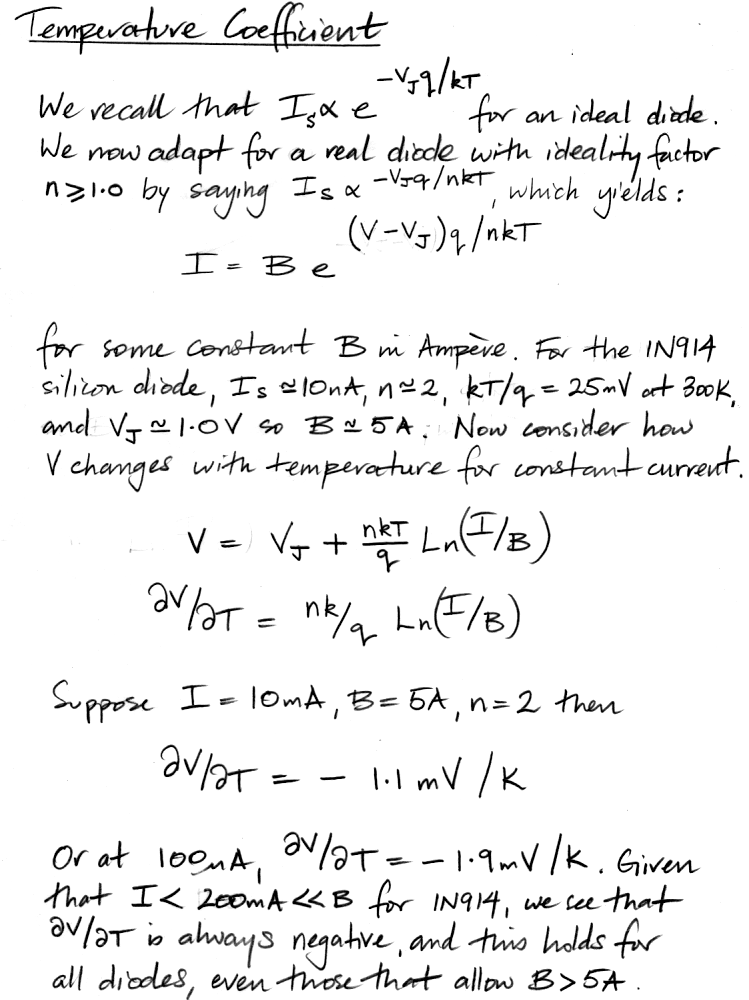 Temperature Coefficient
We recall that I_s ∝ e^(-V_J q/kT) for an ideal diode.
We now adapt for a real diode with ideality factor
n ≥ 1.0 by saying I_s ∝ ^(-V_J q/nkT), which yields:
I = B e^((V-V_J)q/nkT)
for some constant B in Ampère. For the 1N914
silicon diode, I_s ≃ 10nA, n ≃ 2, kT/q = 25mV at 300K,
and V_J ≃ 1.0V so B ≃ 5A. Now consider how
V changes with temperature for constant current.
V = V_J + nkT/q Ln(I/B)
∂V/∂T = nk/q Ln(I/B)
Suppose I = 10mA, B = 5A, n = 2 then
∂V/∂T = - 1.1 mV/K
Or at 100μA, ∂V/∂T = -1.9mV/K. Given
that I < 200mA << B for 1N914, we see that
∂V/∂T is always negative, and this holds for
all diodes, even those that allow B > 5A.